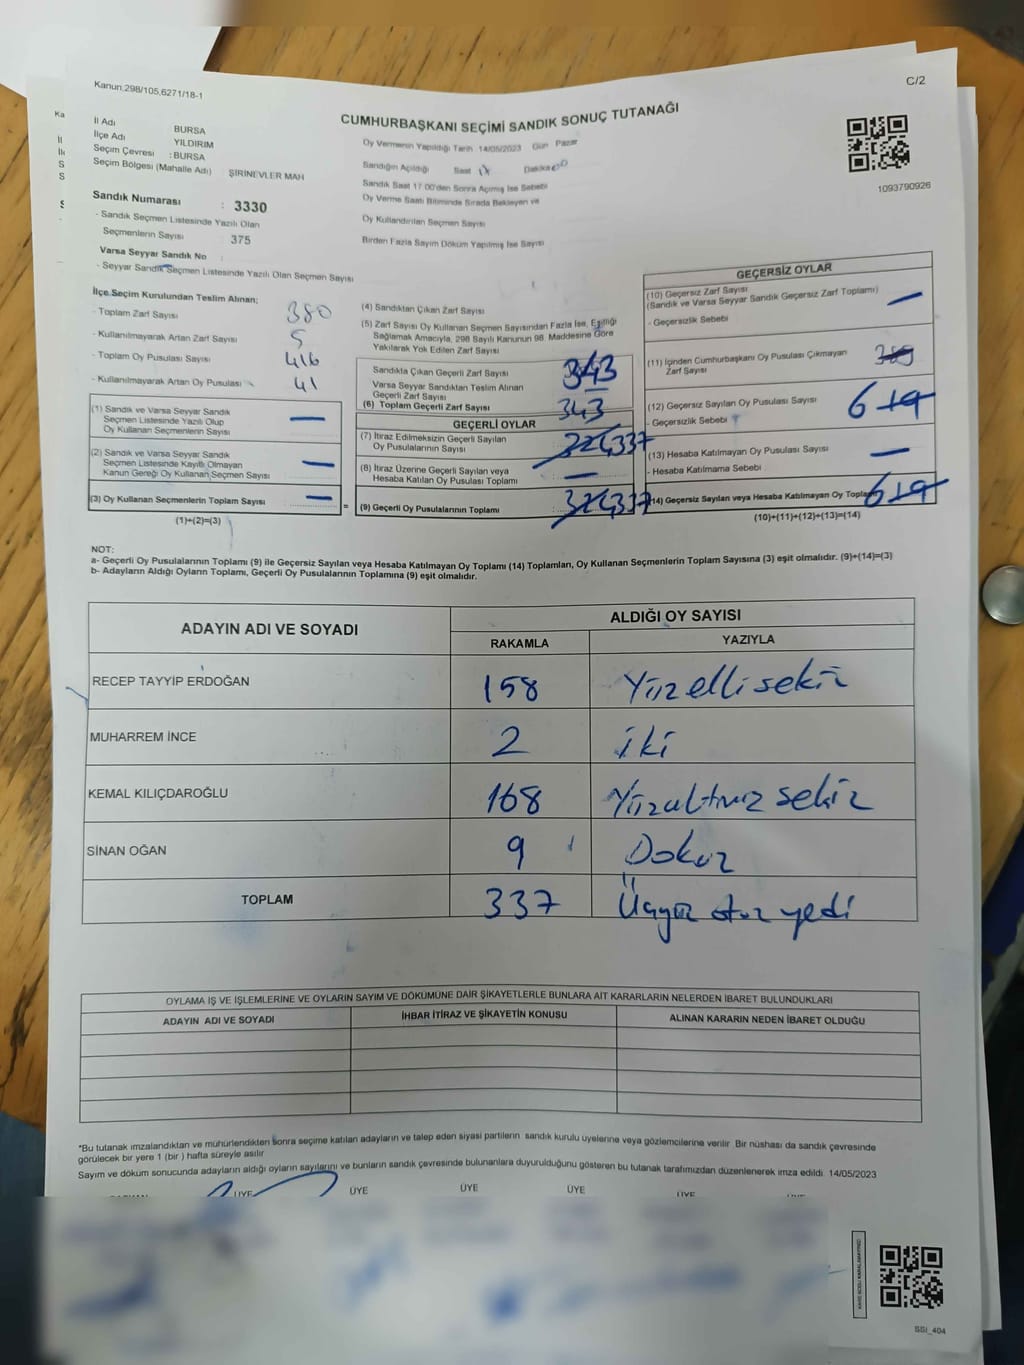 Kanun,298/105,6271/18-1
C/2
CUMHURBAŞKANI SEÇİMİ SANDIK SONUÇ TUTANAĞI
İl Adı BURSA
İlçe Adı YILDIRIM
Seçim Çevresi : BURSA
Seçim Bölgesi (Mahalle Adı) ŞİRİNEVLER MAH
Sandık Numarası : 3330
- Sandık Seçmen Listesinde Yazılı Olan
Seçmenlerin Sayısı 375
Varsa Seyyar Sandık No
- Seyyar Sandık Seçmen Listesinde Yazılı Olan Seçmen Sayısı
Oy Vermenin Yapıldığı Tarih 14/05/2023 Gün Pazar
Sandığın Açıldığı Saat Dakika 00
Sandık Saat 17 00'den Sonra Açımış İse Sebebi
Oy Verme Saati Bitiminde Sırada Bekleyen ve
Oy Kullandırılan Seçmen Sayısı
Birden Fazla Sayım Döküm Yapılmış İse Sayısı
1093790926
İlçe Seçim Kurulundan Teslim Alınan;
- Toplam Zarf Sayısı 380
- Kullanılmayarak Artan Zarf Sayısı 5
- Toplam Oy Pusulası Sayısı 416
- Kullanılmayarak Artan Oy Pusulası 41
(1) Sandık ve Varsa Seyyar Sandık
Seçmen Listesinde Yazılı Olup
Oy Kullanan Seçmenlerin Sayısı —
(2) Sandık ve Varsa Seyyar Sandık
Seçmen Listesinde Kayıtlı Olmayan
Kanun Gereği Oy Kullanan Seçmen Sayısı —
(3) Oy Kullanan Seçmenlerin Toplam Sayısı —
(1)+(2)=(3)
(4) Sandıktan Çıkan Zarf Sayısı
(5) Zarf Sayısı Oy Kullanan Seçmen Sayısından Fazla İse, Eşitliği
Sağlamak Amacıyla, 298 Sayılı Kanunun 98. Maddesine Göre
Yakılarak Yok Edilen Zarf Sayısı
Sandıkla Çıkan Geçerli Zarf Sayısı 343
Varsa Seyyar Sandıktan Teslim Alınan
Geçerli Zarf Sayısı
(6) Toplam Geçerli Zarf Sayısı 343
GEÇERLİ OYLAR
(7) İtiraz Edilmeksizin Geçerli Sayılan
Oy Pusulalarının Sayısı 337
(8) İtiraz Üzerine Geçerli Sayılan veya
Hesaba Katılan Oy Pusulası Toplamı —
(9) Geçerli Oy Pusulalarının Toplamı 337
=
GEÇERSİZ OYLAR
(10) Geçersiz Zarf Sayısı
(Sandık ve Varsa Seyyar Sandık Geçersiz Zarf Toplamı) —
- Geçersizlik Sebebi
(11) İçinden Cumhurbaşkanı Oy Pusulası Çıkmayan
Zarf Sayısı
(12) Geçersiz Sayılan Oy Pusulası Sayısı 6 19
- Geçersizlik Sebebi
(13) Hesaba Katılmayan Oy Pusulası Sayısı —
- Hesaba Katılmama Sebebi
(14) Geçersiz Sayılan veya Hesaba Katılmayan Oy Toplamı 6 19
(10)+(11)+(12)+(13)=(14)
NOT:
a- Geçerli Oy Pusulalarının Toplamı (9) ile Geçersiz Sayılan veya Hesaba Katılmayan Oy Toplamı (14) Toplamları, Oy Kullanan Seçmenlerin Toplam Sayısına (3) eşit olmalıdır. (9)+(14)=(3)
b- Adayların Aldığı Oyların Toplamı, Geçerli Oy Pusulalarının Toplamına (9) eşit olmalıdır.
ADAYIN ADI VE SOYADI
ALDIĞI OY SAYISI
RAKAMLA YAZIYLA
RECEP TAYYİP ERDOĞAN 158 Yüzellisekiz
MUHARREM İNCE 2 iki
KEMAL KILIÇDAROĞLU 168 Yüzaltmız sekiz
SİNAN OĞAN 9 Dokuz
TOPLAM 337 Üçyüz otuz yedi
OYLAMA İŞ VE İŞLEMLERİNE VE OYLARIN SAYIM VE DÖKÜMÜNE DAİR ŞİKAYETLERLE BUNLARA AİT KARARLARIN NELERDEN İBARET BULUNDUKLARI
ADAYIN ADI VE SOYADI İHBAR İTİRAZ VE ŞİKAYETİN KONUSU ALINAN KARARIN NEDEN İBARET OLDUĞU
*Bu tutanak imzalandıktan ve mühürlendikten sonra seçime katılan adayların ve talep eden siyasi partilerin sandık kurulu üyelerine veya gözlemcilerine verilir Bir nüshası da sandık çevresinde
görülecek bir yere 1 (bir) hafta süreyle asılır
Sayım ve döküm sonucunda adayların aldığı oyların sayılarını ve bunların sandık çevresinde bulunanlara duyurulduğunu gösteren bu tutanak tarafımızdan düzenlenerek imza edildi. 14/05/2023
ÜYE ÜYE ÜYE ÜYE ÜYE
SSI_404